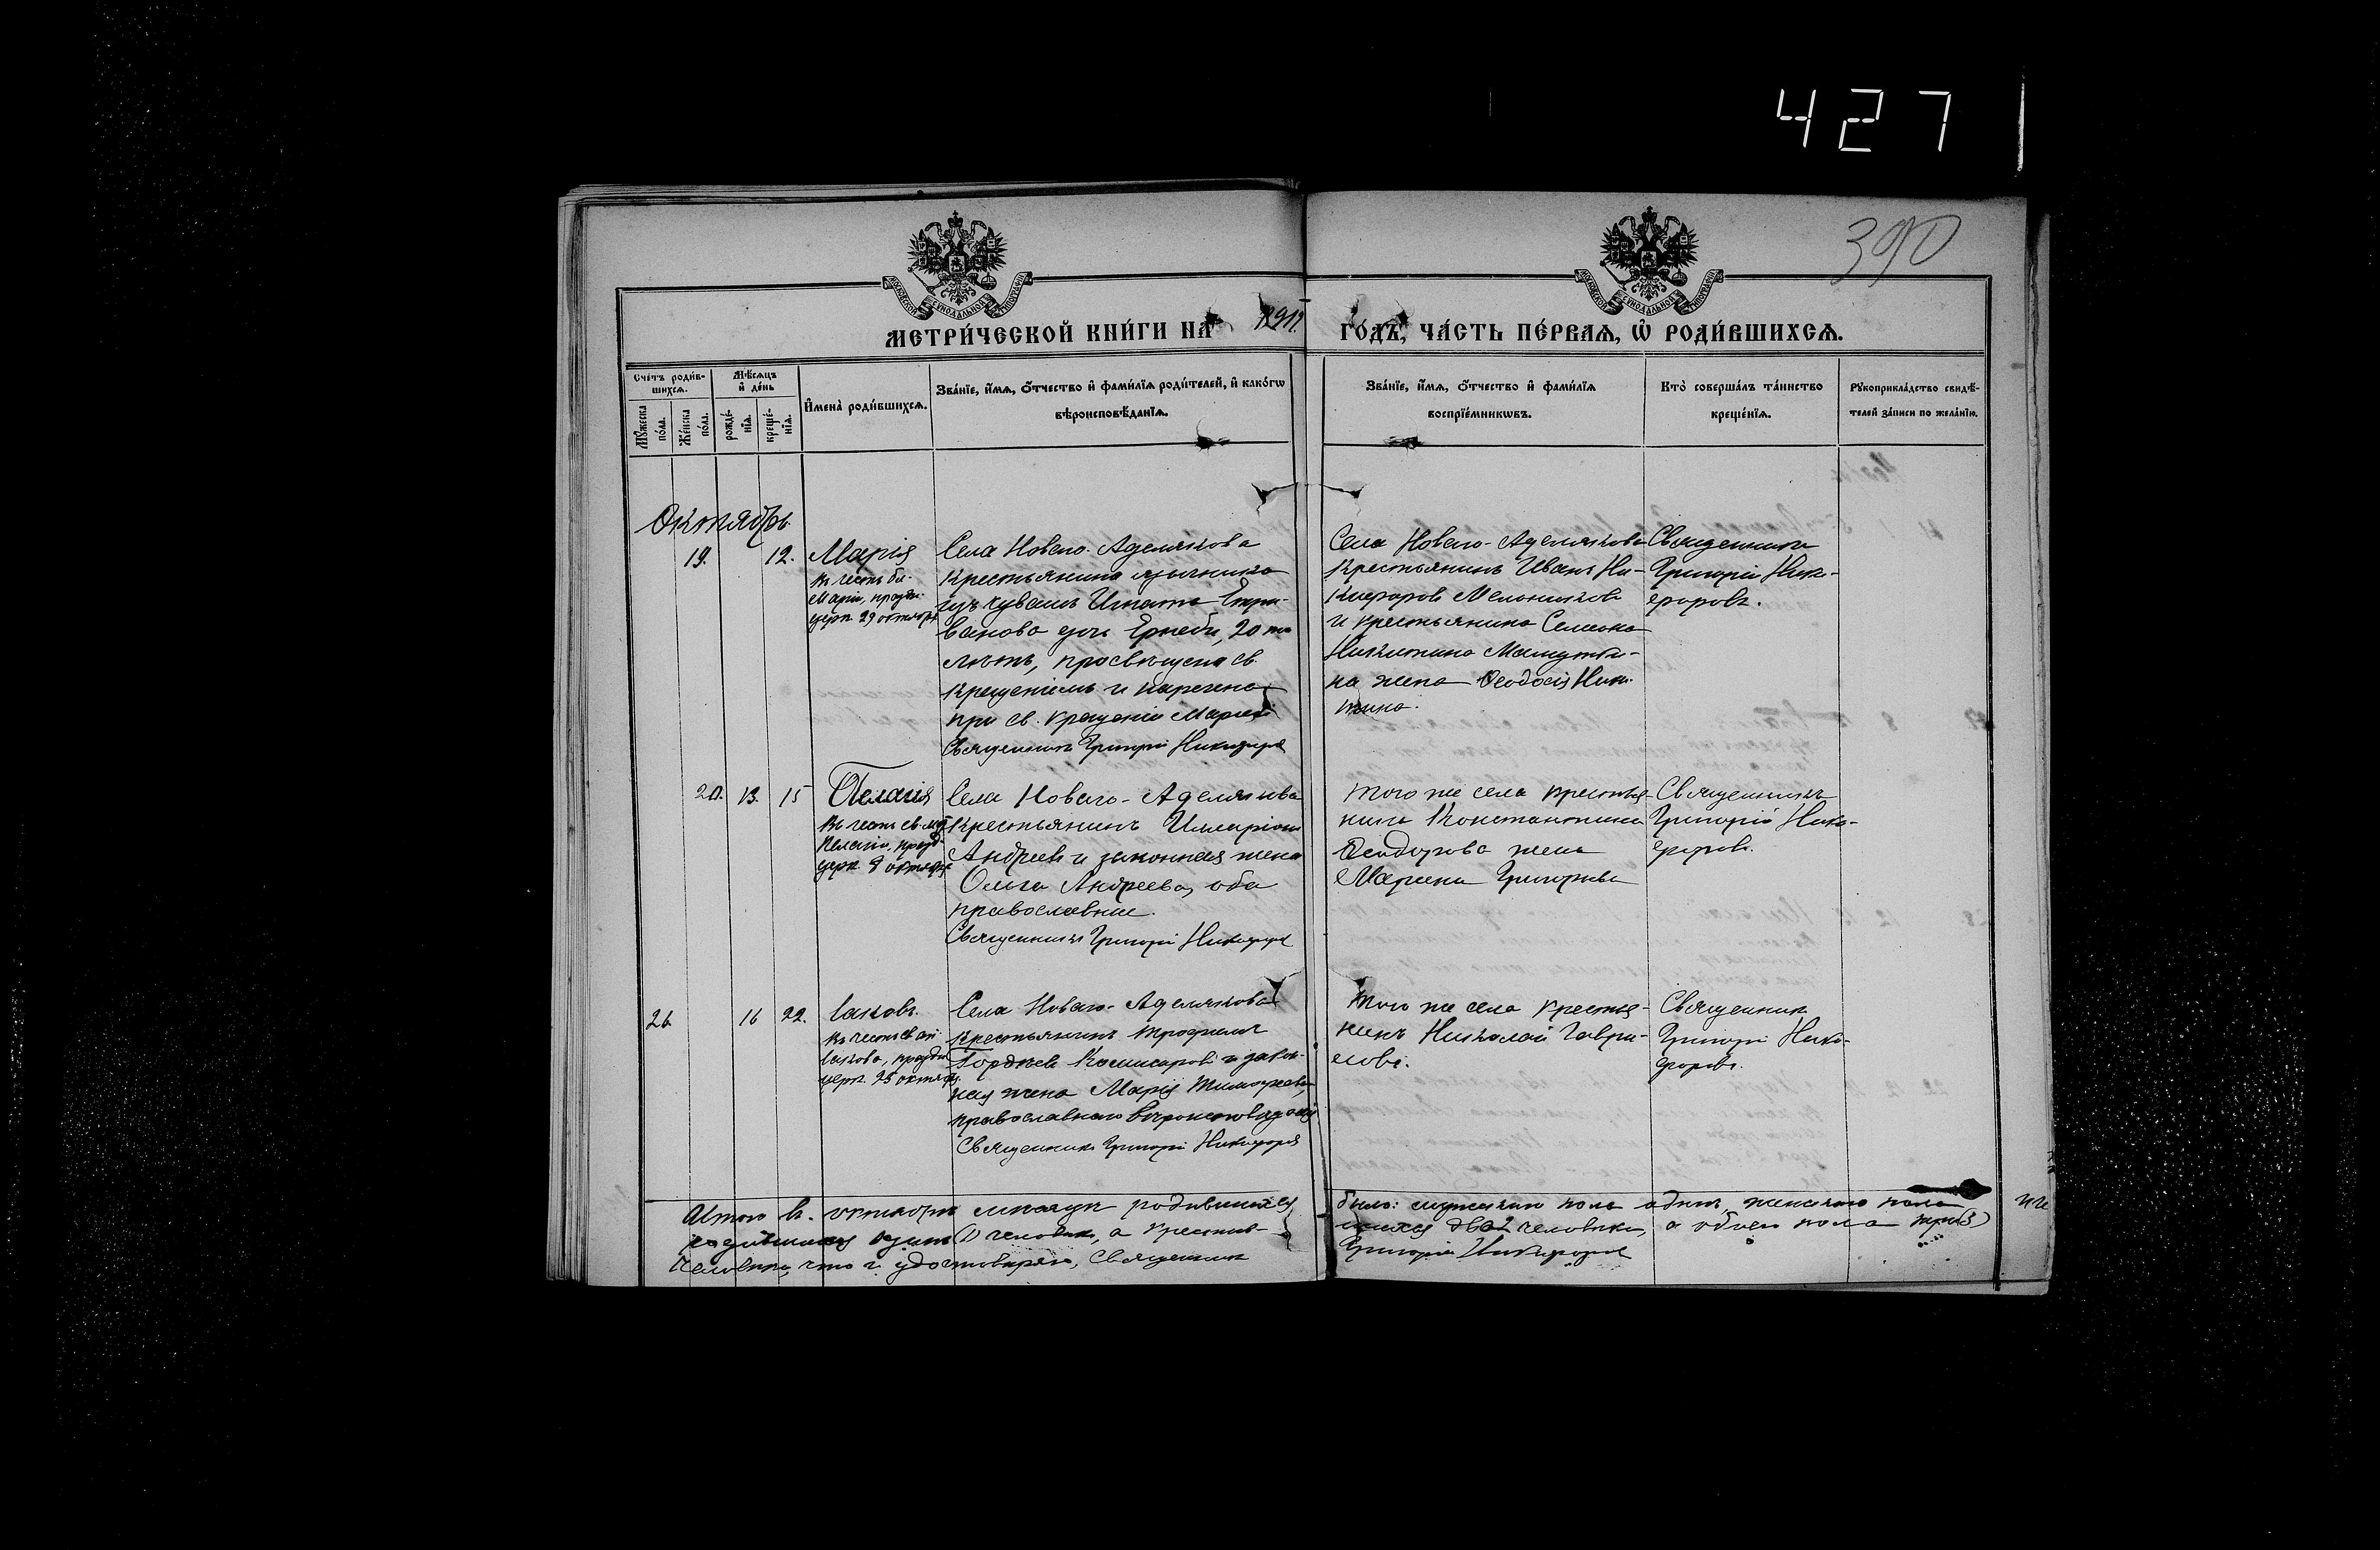 427
390
МОСКОВСКОЙ СѴНОДАЛЬНОЙ ТИПОГРАФІИ
МОСКОВСКОЙ СѴНОДАЛЬНОЙ ТИПОГРАФІИ
МЕТРИ́ЧЕСКОЙ КНИ́ГИ НА 191
ГО́ДЪ, ЧА́СТЬ ПЕ́РВАѦ, Ѡ РОДИ́ВШИХСѦ.
Сче́тъ роди́в-
шихсѧ.
Мѣ́сѧцъ
и҆ де́нь
Мꙋ́жеска
по́ла.
Же́нска
по́ла.
рожде́-
нїѧ.
креще́-
нїѧ.
И҆мена̀ роди́вшихсѧ.
Зва́нїе, и҆́мѧ, ѻ҆́тчество и҆ фами́лїѧ роди́телей, и҆ како́гѡ
вѣроисповѣ́данїѧ.
Зва́нїе, и҆́мѧ, ѻ҆́тчество и҆ фами́лїѧ
воспрїе́мникѡвъ.
Кто̀ соверша́лъ та́инство
креще́нїѧ.
Рꙋкоприкла́дство свидѣ́-
телей за́писи по жела́нїю.
Октябрь
19. 12. Марія
въ честь бл.
Маріи, праздн.
церк. 29 октября
Села Новаго-Аделякова
крестьянина язычника
изъ чувашъ Игната
ванова дочь 20
лѣтъ, просвѣщена св.
крещеніемъ и наречена
при св. крещеніи Маріей
Священникъ Григорій Никифоровъ
Села Новаго-Аделякова
крестьянинъ Иванъ Ни-
кифоровъ Мельниковъ
и крестьянина Семена
Никитина
на жена Ѳеодосія Ники-
тина.
Священникъ
Григорій Ники-
форовъ.
20. 13. 15 Пелагія
въ честь св. муч.
Пелагіи, празд.
церк. 8 октября
Села Новаго-Аделякова
крестьянинъ Илларіонъ
Андреевъ и законная жена
Ольга Андреева, оба
православные.
Священникъ Григорій Никифоровъ
того же села крестья-
нина Константина
Ѳеодорова жена
Марина Григорьева
Священникъ
Григорій Ники-
форовъ.
26. 16 22. Іаковъ.
въ честь св. ап.
Іакова, праздн.
церк. 23 октября.
Села Новаго-Аделякова
крестьянинъ Трофимъ
Гордѣевъ Комисаровъ и закон-
ная жена Марія Тимофеева,
православнаго вѣроисповѣданія
Священникъ Григорій Никифоровъ
того же села крестья-
нинъ Николай Гаври-
ловъ.
Священник
Григорій Ники-
форовъ.
Итого въ октябрѣ мѣсяцѣ родившихся
было: мужескаго пола одинъ, женскаго пола
родившихся одинъ (1) человѣкъ, а крестив-
шихся два 2 человѣка, а обоего пола три (3)
человѣка, что и удостовѣряю, Священникъ
Григорій Никифоровъ